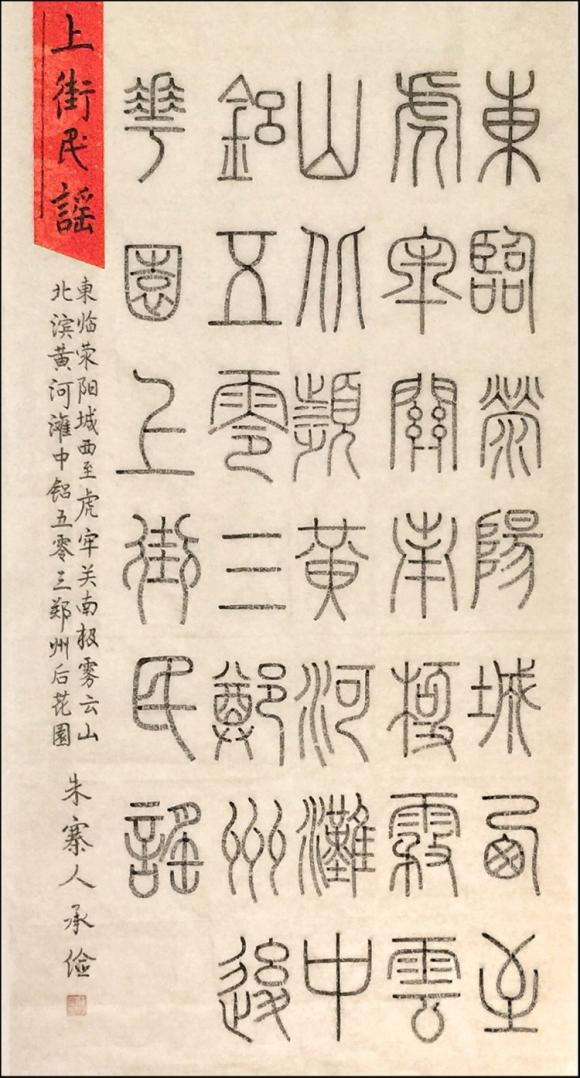 東臨滎陽城西至
虎牢關南極霧雲
山北瀕黃河灘中
鋁五零三鄭州後
華園上街民謠
上街民謠
東临荥阳城西至虎牢关南极雾云山
北滨黄河滩中铝五零三郑州后花園
朱寨人承俭